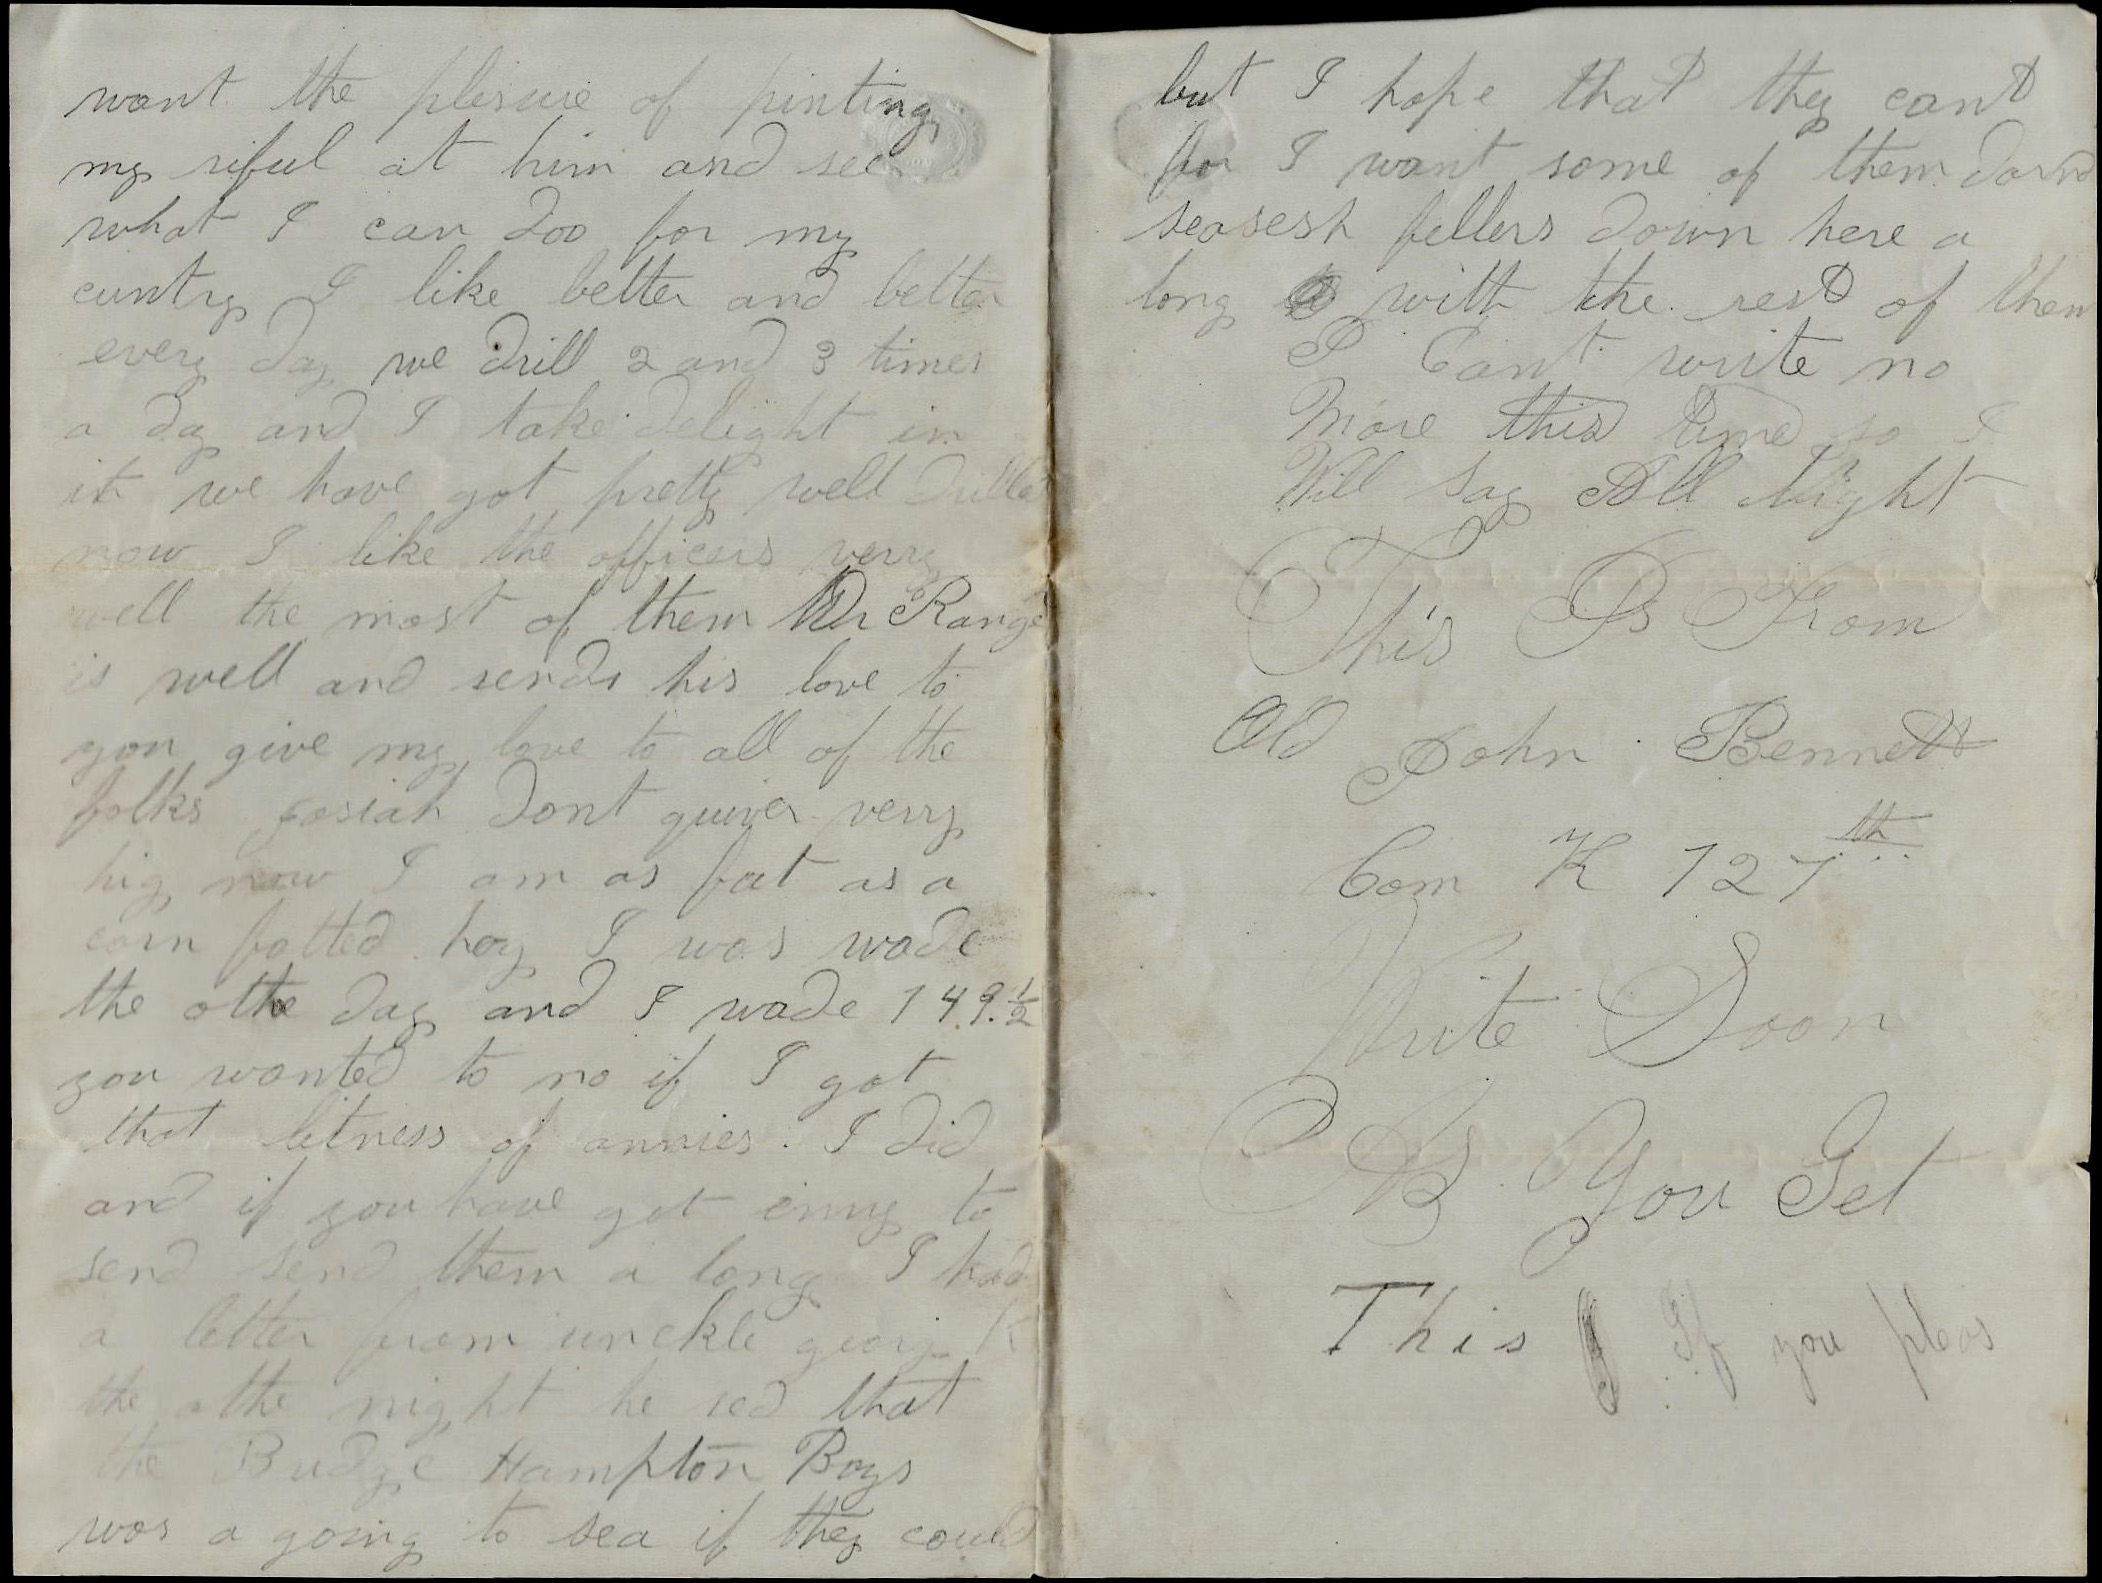 want the plesure of pinting
my riful at him and see
what I can doo for my
cuntry I like better and better
every day we drill 2 and 3 times
a day and I take delight in
it we have got pretty well drilled
now I like the officers verry
well the most of them Mr Range
is well and sends his love to
you give my love to all of the
folks josiah dont quiver verry
big now I am as fat as a
corn fatted hog I was wade
the othe day and I wade 149.½
you wanted to no if I got
that litness of annies. I did
and if you have got enny to
send send them a long I had
a letter from unckle georg
the othe night he sed that
the Budge Hampton Boys
was a going to sea if they could
but I hope that they cant
for I want some of them darn
seasesh fellers down here a
long with the rest of them
I Cant write no
More this time so I
Will Say All Right
This Is From
Old John Bennett
Com K 127th
Write Soon
As You Get
This If you pleas